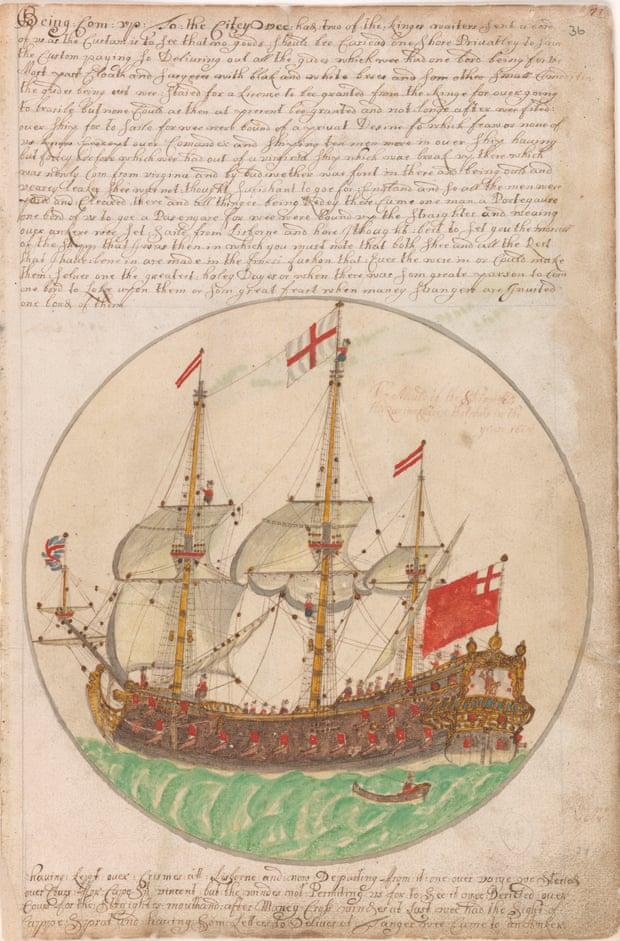 Being Com: vp: To: the Citey wee had two of the Kinges waiters sent a bord
of vs as the Custam is to See that no goods Should bee Caried one Shore Privatley to Save
the Custom paying So Delivring out all the gudes which wee had one bord being for the
Most part Cloath and Sargees with blak and white bees and Som other Small
the gudes being out wee Staied for a Licence to bee granted from the Kinge for over going
to brasile but none Could as then at present bee granted and not Longe after wee fited
over Ship for to Saile for wee were bound of a privat Desine to which few or none of
vs knew Except over Comander and Shiping ten men more in over Ship having
but forty before which wee had out of a virginia Ship which was broak vp there which
was newly Com from virginia and by bad wether was forst in there and being ould and
veary Leakey Shee was not thought Sufishant to goe for England and So all the men were
and Cleared there and all thinges being Redey there Came one man a Portegause
one bord of vs to goe a Pasengare for wee were bound vp the Straightes and
over anker wee Set Saile from Lisborne and here I thought best to Set you the
of the Ship that I was then in which you must note that both Shee and all the Rest
that I have bene in are made in the fashon that Ever the were in or Could make
them Selves one the greatest holey Dayes or when there was Som greate parson to Com
one bord to Loke vpon them or Som great feast when maney Strangers are Invited
one bord of them
36
The of the Ship
in the
yeare
having Left over at Lisborne and now Departing from it one over varge we
over Cours for Cape St vincent but the windes not Permiting vs for to See it wee Derected over
Cours for the Straightes mouth and after Maney Cros windes at Last wee had the Sight of
Cappe Sprat and having Som Letters to Deliver at Tanger wee Came to an anker